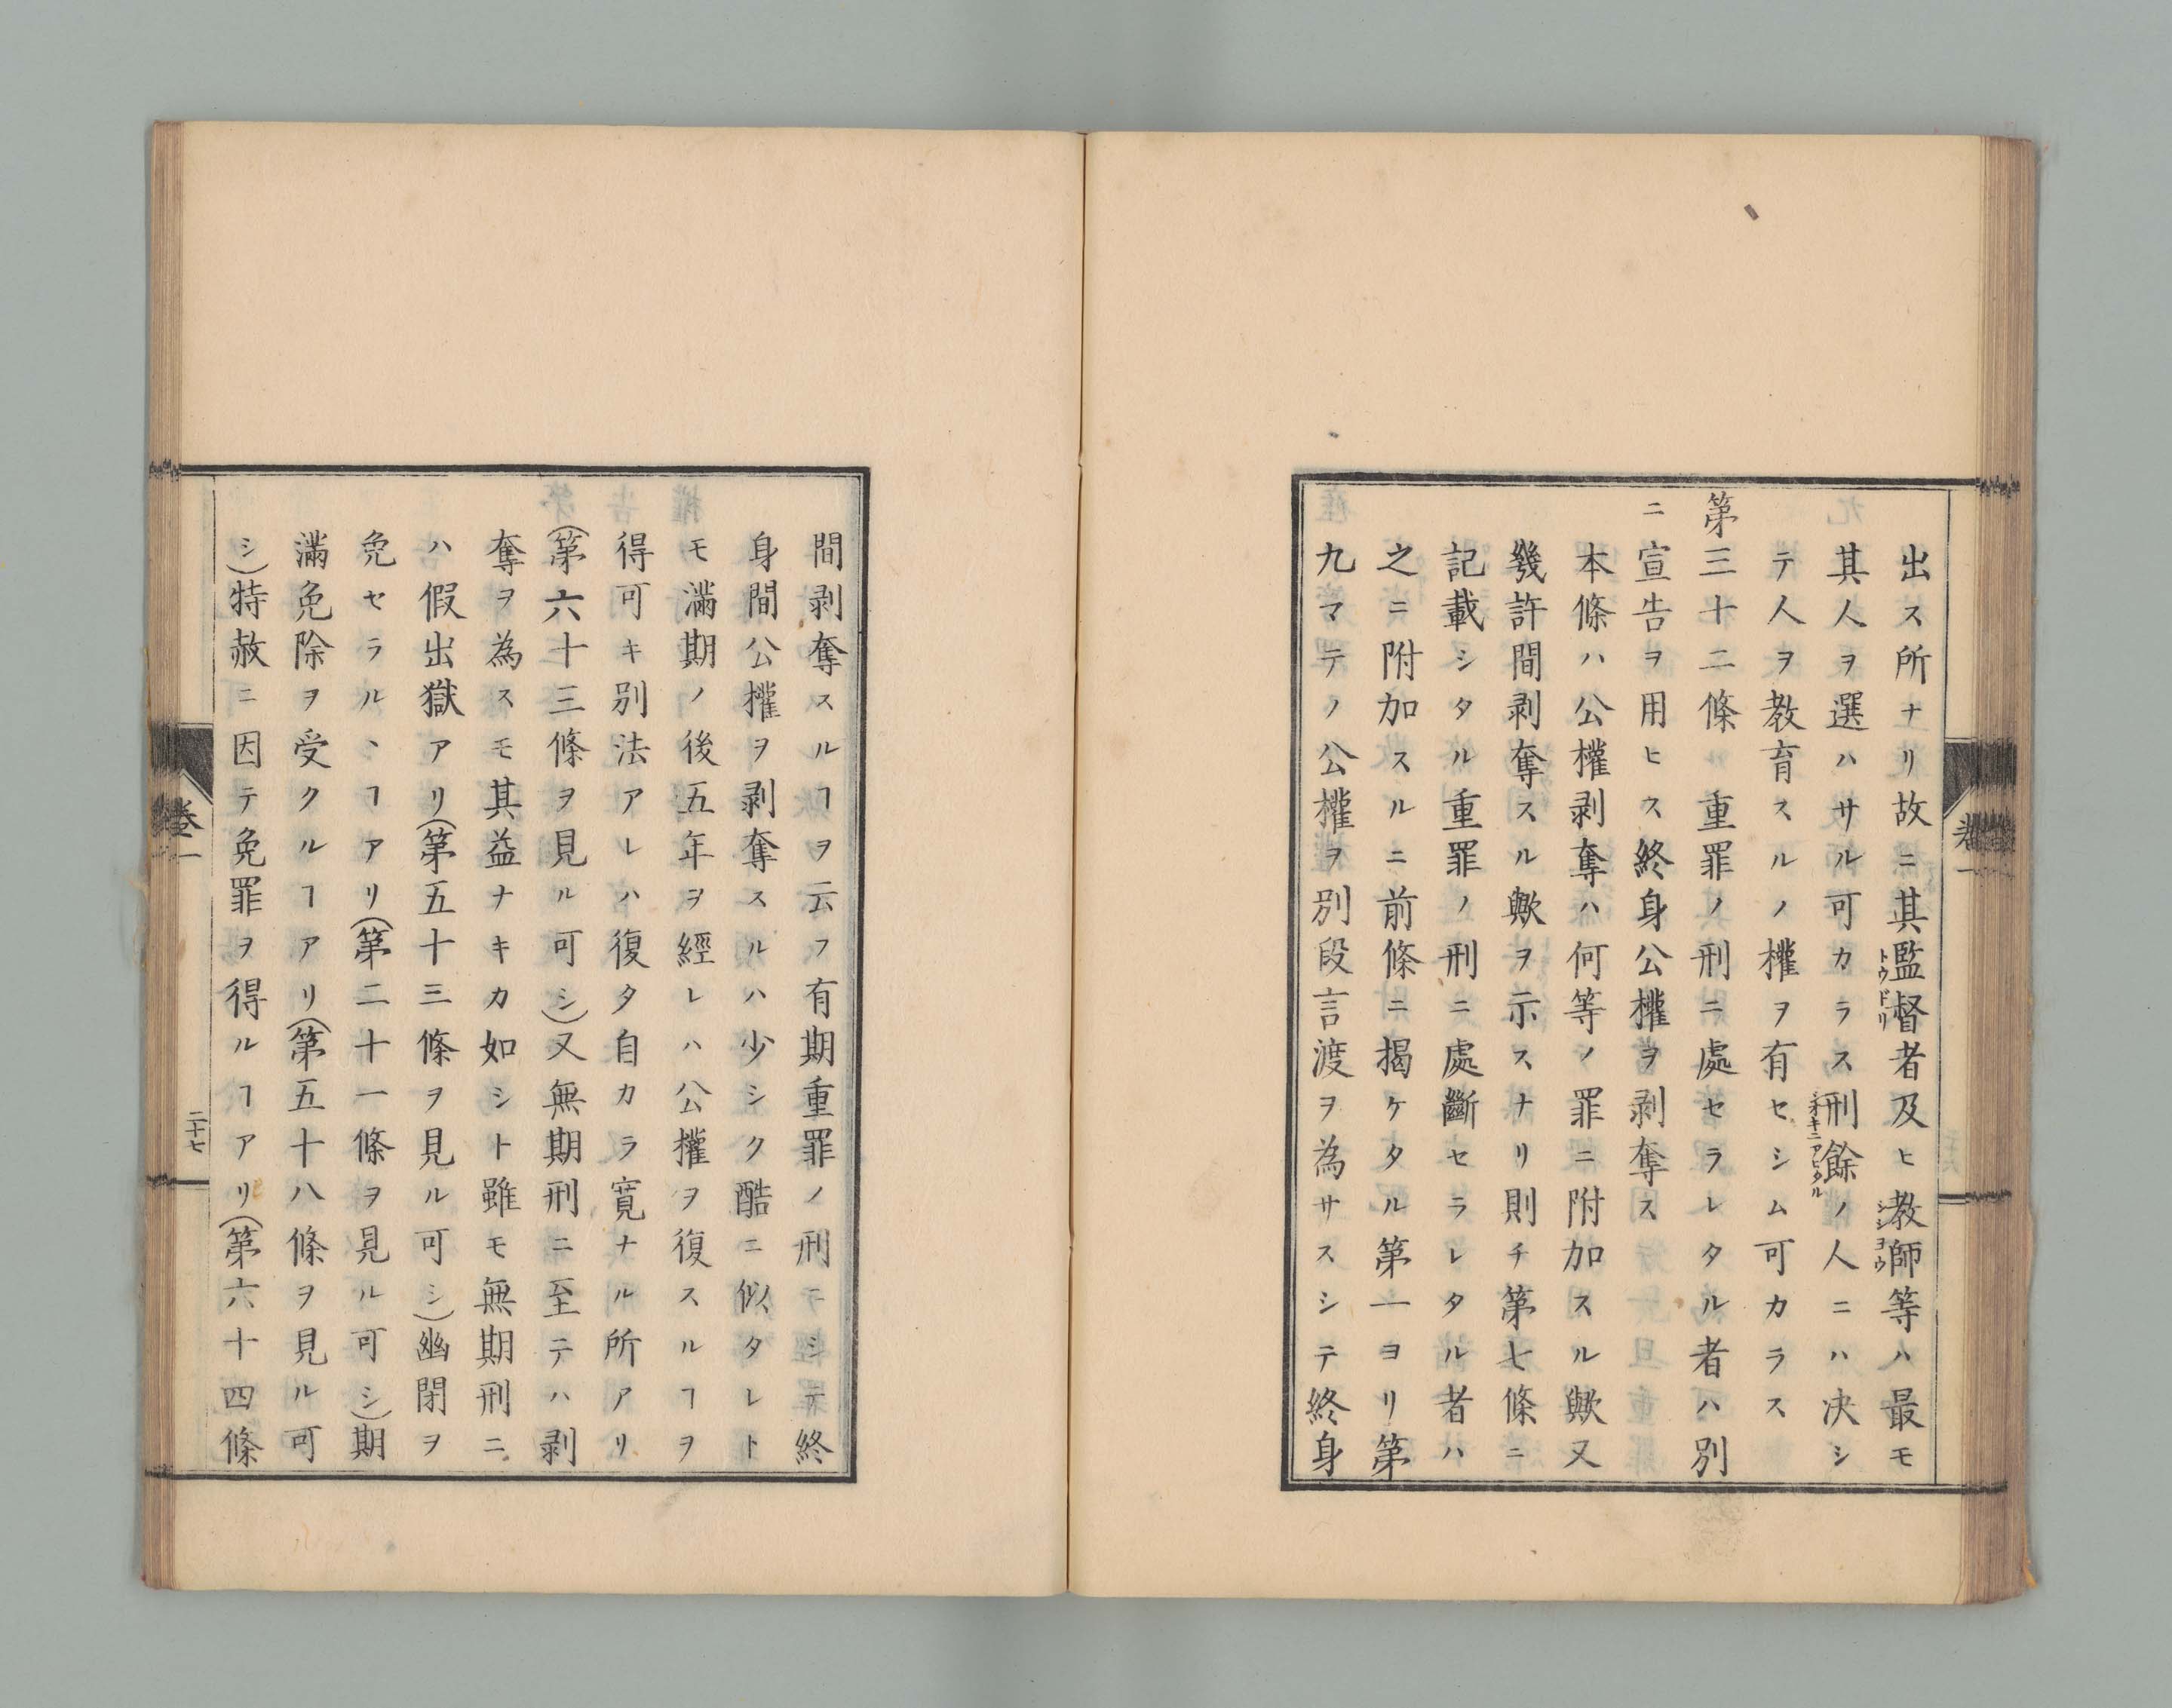 出ス所ナリ故ニ其監督者及ヒ教師等ハ最モ
トウドリ
シシヨウ
其人ヲ選ハサル可カラス刑餘ノ人ニハ决シ
シオキニアヒタル
テ人ヲ教育スルノ權ヲ有セシム可カラス
第三十二條 重罪ノ刑ニ處セラレタル者ハ別
ニ宣告ヲ用ヒス終身公權ヲ剥奪ス
本條ハ公權剥奪ハ何等ノ罪ニ附加スル歟又
幾許間剥奪スル歟ヲ示スナリ則チ第七條ニ
記載シタル重罪ノ刑ニ處斷セラレタル者ハ
之ニ附加スルニ前條ニ揭ケタル第一ヨリ第
九マテノ公權ヲ別段言渡ヲ為サスシテ終身
卷一
間剥奪スルヿヲ云フ有期重罪ノ刑ニシテ終
身間公權ヲ剥奪スルハ少シク酷ニ似タレト
モ滿期ノ後五年ヲ經レハ公權ヲ復スルヿヲ
得可キ別法アレハ復タ自カラ寬ナル所アリ
(第六十三條ヲ見ル可シ)又無期刑ニ至テハ剥
奪ヲ為スモ其益ナキカ如シト雖モ無期刑ニ
ハ假出獄アリ(第五十三條ヲ見ル可シ)幽閉ヲ
免セラルヽヿアリ(第二十一條ヲ見ル可シ)期
滿免除ヲ受クルヿアリ(第五十八條ヲ見ル可
シ)特赦ニ因テ免罪ヲ得ルヿアリ(第六十四條
卷一
二十七